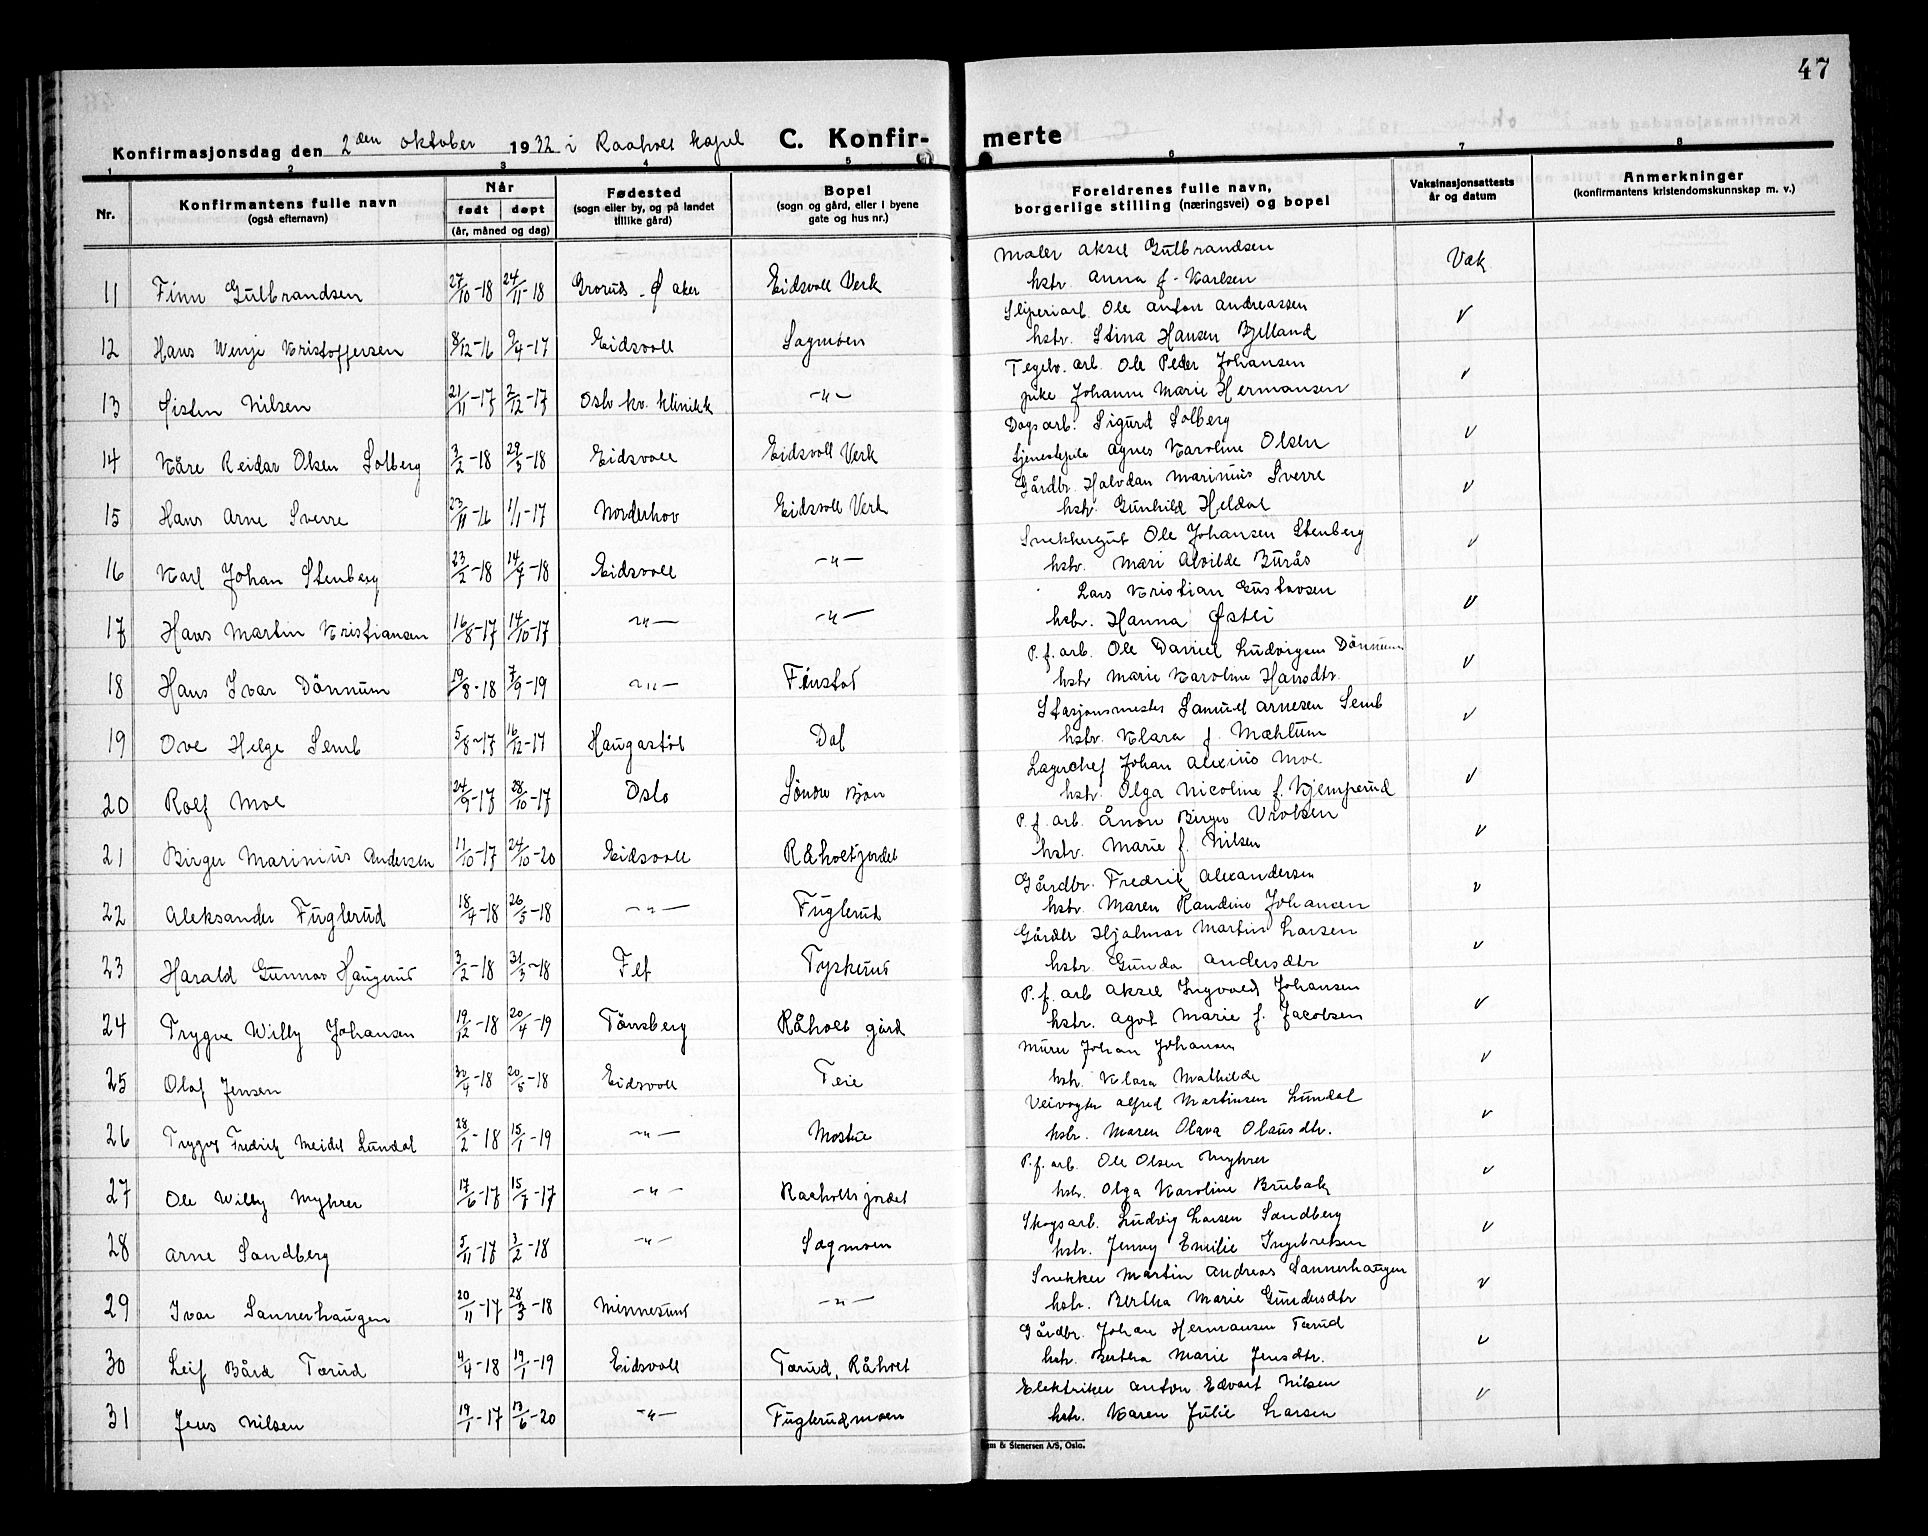 47
Konfirmasjonsdag den 2den oktober 1932 i Raaholt kapel C. Konfir- merte
1 2 3 4 5 6 7 8
Nr. Konfirmantens fulle navn (også efternavn) Når født døpt (år, måned og dag) Fødested (sogn eller by, og på landet tillike gård) Bopel (sogn og gård, eller i byene gate og hus nr.) Foreldrenes fulle navn, borgerlige stilling (næringsvei) og bopel Vaksinasjonsattests år og datum Anmerkninger (konfirmantens kristendomskunnskap m. v.)
Maler Aksel Gulbrandsen
11 Finn Gulbrandsen 27/10-18 24/11-18 Grorud - Ø aker Eidsvoll Verk hstr. Anna f. Karlsen Vak
Sliperiarb. Ole Anton Andreassen
12 Hans Wenje Kristoffersen 8/12-16 9/4-17 Eidsvoll Sagmoen hstr. Stina Hansen Bjelland v
Teglv. arb. Ole Peder Johansen
13 Øisten Nilsen 21/11-17 2/12-17 Oslo kv. klinikk -"- pike Johanne Marie Hermansen v
Dagsarb. Sigurd Solberg
14 Kåre Reidar Olsen Solberg 3/2-18 29/3-18 Eidsvoll Eidsvoll Verk tjenestepike Agnes Karoline Olsen v
Gårdbr. Halvdan Marinius Sverre
15 Hans Arne Sverre 23/11-16 1/1-17 Norderhov Eidsvoll Verk hstr. Gunhild Heldal v
Snekkergut Ole Johansen Stenberg
16 Karl Johan Stenberg 23/2-18 14/7-18 Eidsvoll -"- hstr. Mari Alvilde Burås v
Lars Kristian Gustavsen
17 Hans Martin Kristiansen 16/8-17 14/10-17 -"- -"- hstr. Hanna Østli v
P. f. arb. Ole Daniel Ludvigsen Dønnum
18 Hans Ivar Dönnum 19/8-18 7/9-19 -"- Finstad hstr Marie Karoline Hansdtr. v
Stasjonsmester Samuel Arnesen Semb
19 Ove Helge Semb 5/8-17 16/12-17 Haugastöl Dal hstr. Klara f. Mæhlum v
Lagerchef Johan Alexius Moe
20 Rolf Moe 24/9-17 28/10-17 Oslo Söndre Bjön hstr. Olga Nicoline f. Kjemperud v
P. f. arb. Ånon Birger
21 Birger Marinius Andersen 11/10-17 24/10-20 Eidsvoll Råholtjordet hstr. Marie f. Nilsen v
Gårdbr. Fredrik Alexandersen
22 Aleksander Fuglerud 18/4-18 26/5-18 -"- Fuglerud hstr. Maren Randine Johansen v
Gårdbr Hjalmar Martin Larsen
23 Harald Gunnar Haugerud 3/2-18 31/3-18 Fet Tyskerud hstr. Gunda Andersdtr v
P. f. arb Aksel Ingvald Johansen
24 Trygve Willy Johansen 19/12-18 20/4-19 Tönsberg Råholt gård hstr. Agot Marie f. Jacobsen v
Murer Johan Johansen
25 Olaf Jensen 30/4-18 20/5-18 Eidsvoll Teie hstr. Klara Mathilde v
Veivogter Alfred Martinsen Lundal
26 Trygve Fredrik Meidel Lundal 28/2-18 15/1-19 -"- Mostue hstr. Maren Olava Olausdtr. v
P. f. arb. Ole Olsen Myhrer
27 Ole Willy Myhrer 17/6-17 15/7-17 -"- Raaholtsjordet hstr. Olga Karoline Brubak v
Skogsarb. Ludvig Larsen Sandberg
28 Arne Sandberg 5/11-17 3/2-18 -"- Sagmoen hstr. Jenny Emilie Ingebretsen v
Snekker Martin Andreas Sannerhaugen
29 Ivar Sannerhaugen 20/11-17 28/3-18 Minnesund -"- hstr. Bertha Marie Gundersdtr v
Gårdbr. Johan Hermansen Tærud
30 Leif Bård Tærud 4/4-18 19/1-19 Eidsvoll Tærud, Råholt hstr. Bertha Marie Jensdtr. v
Elektriker Anton Edvart Nilsen
31 Jens Nilsen 19/1-17 13/6-20 -"- Fuglerudmoen hstr. Karen Julie Larsen v
& Stenersen A/S, Oslo.